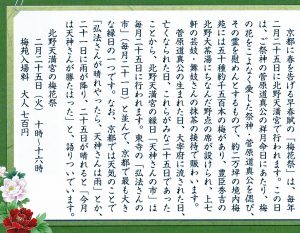 京都に春を告げる早春賦の「梅花祭」は、毎年
二月二十五日に北野天満宮で行われます。この日
は、ご祭神の菅原道真公の祥月命日にあたり、梅
の花をこよなく愛した祭神・菅原道真公を偲び、
その霊を慰めんとするもので、約二万坪の境内梅
苑には五十種約千五百本の梅があり、豊臣秀吉の
北野大茶湯にちなんだ野点の席が設けられ、上七
軒の芸妓・舞妓さんの抹茶の接待で賑わいます。
菅原道真公の生まれた日、大宰府に流された日、
亡くなられた日、これらがみな二十五日であった
ことから、北野天満宮の縁日「天神さんの市」は
毎月二十五日に行われます。東寺の「弘法さんの
市」（毎月二十一日）と並んで、京都で最も大き
な縁日の一つです。なお、京都では天気のことで、
「弘法さんが晴れやったら、天神さんは雨」とか、
二十一日に雨が降り、二十五日が晴れると「今月
は天神さんが勝たはった」と、語りついています。
北野天満宮の梅花祭
二月二十五日（火）　十時〜十六時
梅苑入場料　大人　七百円